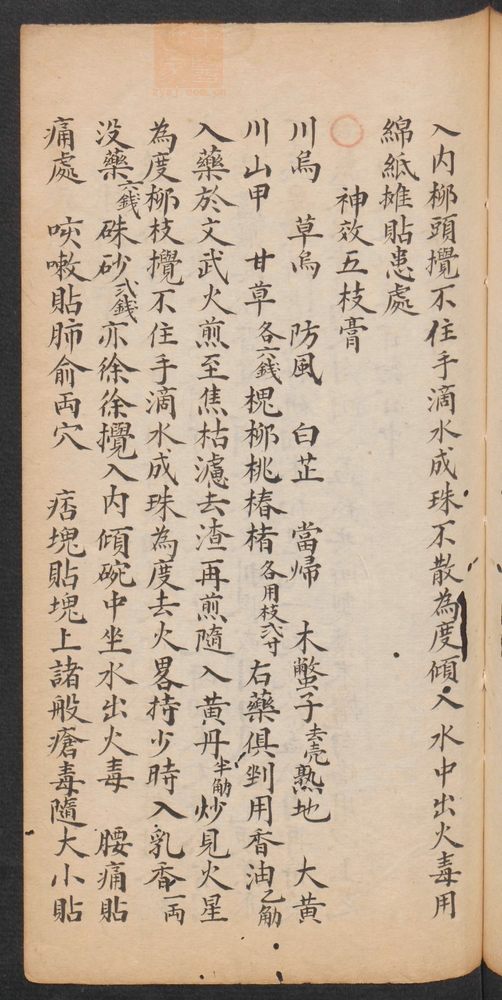 入内柳頭攪不住手滴水成珠不散為度傾入水中出火毒用
綿紙摊貼患處
神效五枝膏
川烏 草烏 防風 白芷 當帰 木蟞子去壳熟地 大黄
川山甲 甘草各六錢槐柳桃椿楮各用枝弍寸右藥俱剉用香油乙觔
入藥於文武火煎至焦枯濾去渣再煎隨入黄丹半觔炒見火星
為度柳枝攪不住手滴水成珠為度去火畧持少時入乳香一両
没藥六錢硃砂弍錢亦徐徐攪入内傾碗中坐水出火毒 腰痛貼
痛處 咳嗽貼肺俞両穴 痞塊貼塊上諸般瘡毒隨大小貼